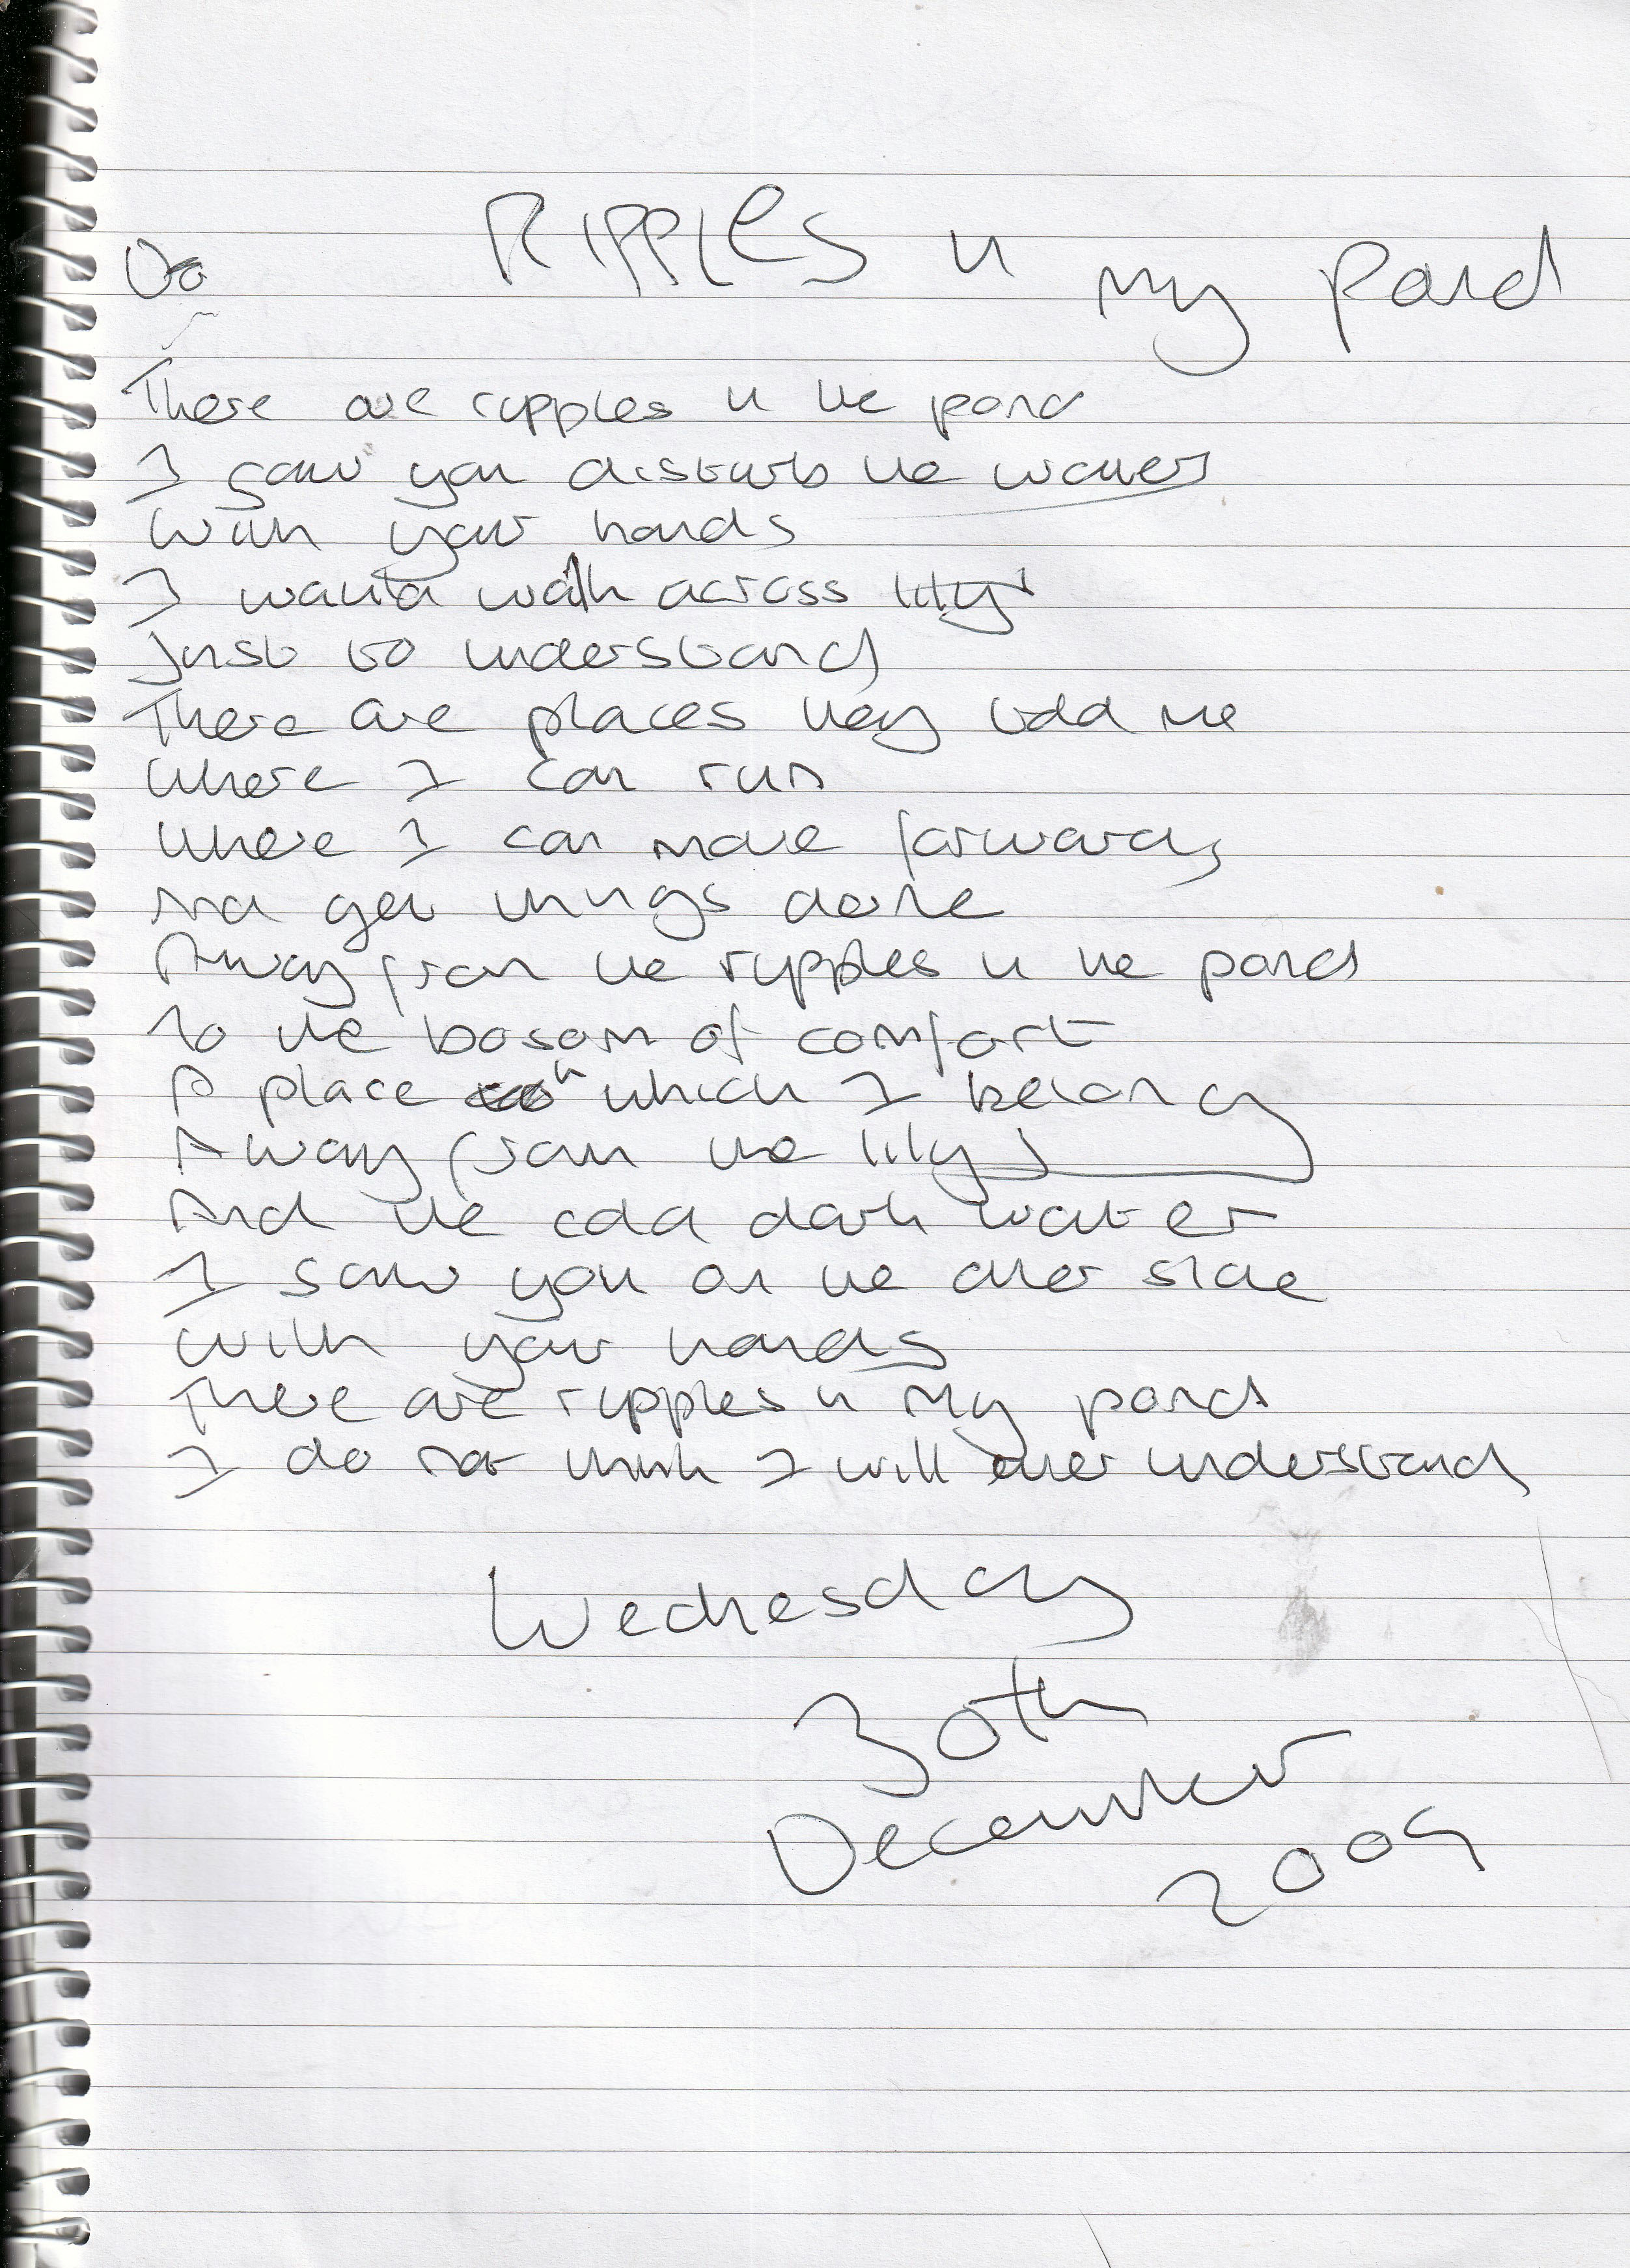 Ripples in my Pond
There are ripples in the pond
I saw you disturb the waters
With your hands
I wanta walk across lilys
Just to understand
There are places they told me
Where I can run
Where I can move forwards
And get things done
Away from the ripples in the pond
To the bosom of comfort
A place in which I belong
Away from the lilys
And the cold dark water
I saw you on the other side
With your hands
There are ripples in my pond
I do not think I will ever understand
Wednesday
30th
December
2009